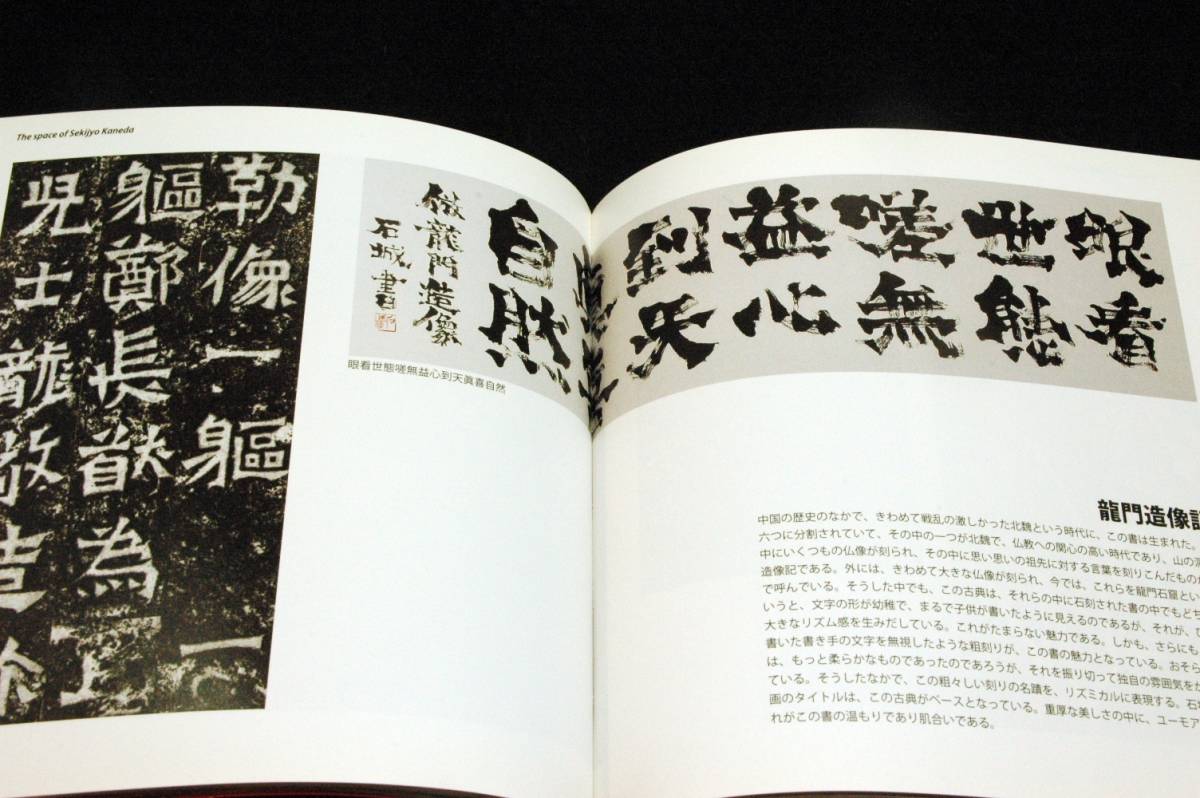 The space of Sekijyo Kaneda
勒像一軀
軀鄭長猷為亡
兒士龍敬造
眼看
世態
嗟無
益心
到天
自然
倣龍門造像
石城書
眼看世態嗟無益心到天眞喜自然
龍門造像記
中国の歴史のなかで、きわめて戦乱の激しかった北魏という時代に、この書は生まれた。
六つに分割されていて、その中の一つが北魏で、仏教への関心の高い時代であり、山の
中にいくつもの仏像が刻られ、その中に思い思いの祖先に対する言葉を刻りこんだもの
造像記である。外には、きわめて大きな仏像が刻られ、今では、これらを龍門石窟とい
で呼んでいる。そうした中でも、この古典は、それらの中に石刻された書の中でもどち
いうと、文字の形が幼稚で、まるで子供が書いたように見えるのであるが、それが、
大きなリズム感を生みだしている。これがたまらない魅力である。しかも、さらにも
書いた書き手の文字を無視したような粗刻りが、この書の魅力となっている。おそら
は、もっと柔らかなものであったのであろうが、それを振り切って独自の雰囲気を
ている。そうしたなかで、この粗々しい刻りの名蹟を、リズミカルに表現する。石
画のタイトルは、この古典がベースとなっている。重厚な美しさの中に、ユーモア
れがこの書の温もりであり肌合いである。